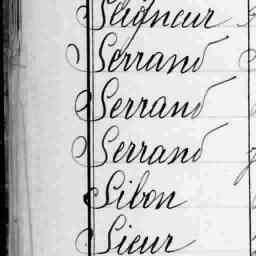 Seigneur
Serrand
Serrand
Serrand
Sibon
Sieur